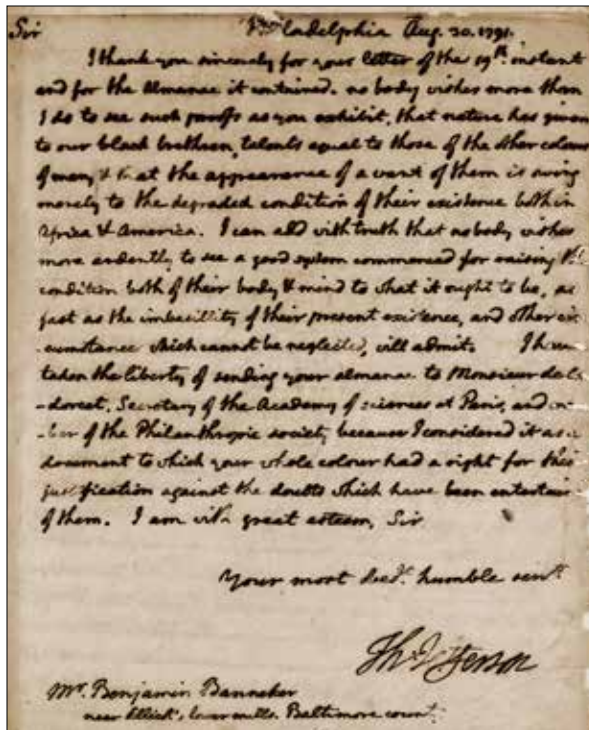 Sir Philadelphia Aug. 30. 1791.
I thank you sincerely for your letter of the 19th. instant
and for the Almanac it contained. no body wishes more than
I do to see such proofs as you exhibit, that nature has given
to our black brethren, talents equal to those of the other colours
of men, & that the appearance of a want of them is owing
merely to the degraded condition of their existence both in
Africa & America. I can add with truth that no body wishes
more ardently to see a good system commenced for raising the
condition both of their body & mind to what it ought to be, as
fast as the imbecillity of their present existence, and other cir
-cumstance which cannot be neglected, will admit. I have
taken the liberty of sending your almanac to Monsieur de
-dorcet, Secretary of the Academy of sciences at Paris, and
-ber of the Philanthropic society because I considered it as a
document to which your whole colour had a right for their
justification against the doubts which have been entertain
of them. I am with great esteem, Sir
Your most obedt. humble servt.
Th: Jefferson
Mr. Benjamin Banneker
near Ellicot's, lower mills. Baltimore count